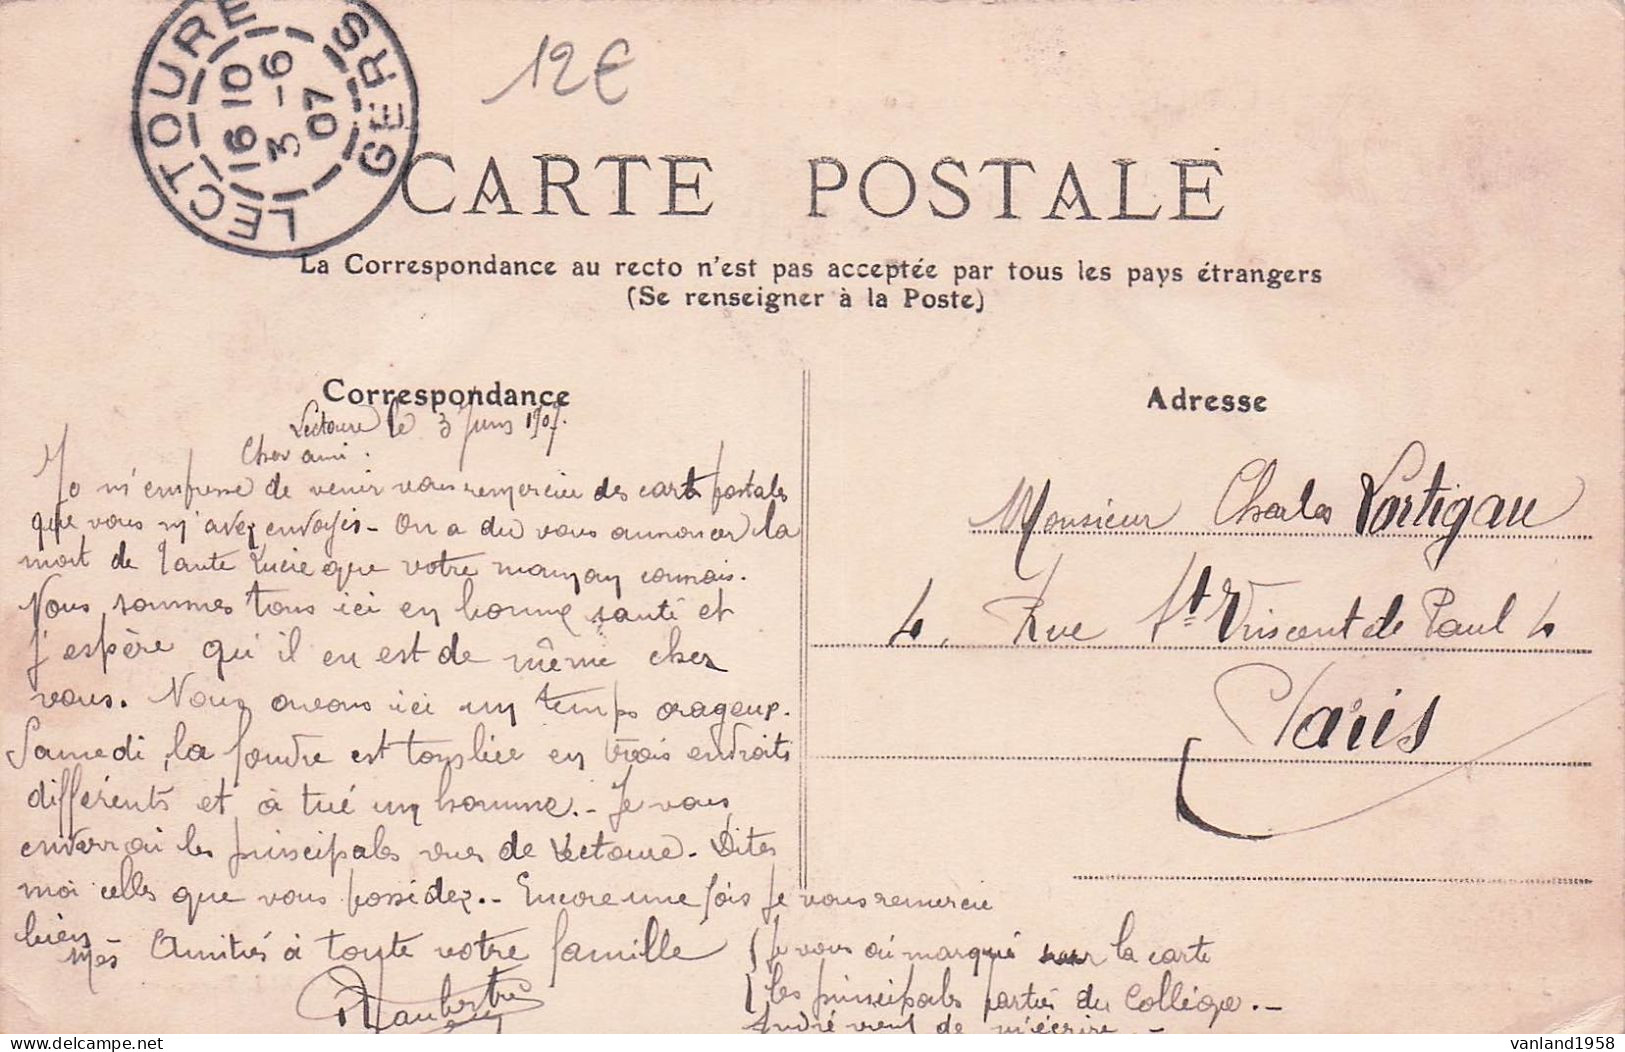 LECTOURE
GERS
16 10
3 - 6
07
12€
CARTE POSTALE
La Correspondance au recto n'est pas acceptée par tous les pays étrangers
(Se renseigner à la Poste)
Correspondance
Adresse
Lectoure le 3 Juin 1907.
Cher ami.
Je m'empresse de venir vous remercier des carts postales
que vous m'avez envoyés - On a dû vous annoncer la
mort de Tante Lucie que votre maman connais.
Nous sommes tous ici en bonne santé et
j'espère qu'il en est de même chez
vous. Nous avons ici un temps orageux.
Samedi, la foudre est tombée en trois endroits
différents et à tué un homme. - Je vous
enverrai les principales vues de Lectoure. Dites
moi celles que vous possédez. - Encore une fois je vous remercie
bien - Amitiés à toute votre famille
mes
Monsieur Charles Vortigau
4, Rue St Vincent de Paul 4
Paris
Je vous ai marqué sur la carte
les principales parties du Collège. -
André vient de m'écrire -
vanland1958